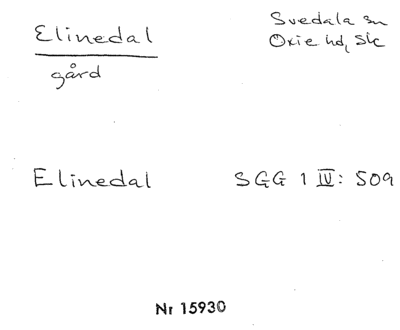 Elinedal
gård
Svedala sn
Oxie hd, Sk
Elinedal SGG 1 IV: 509
Nr 15930